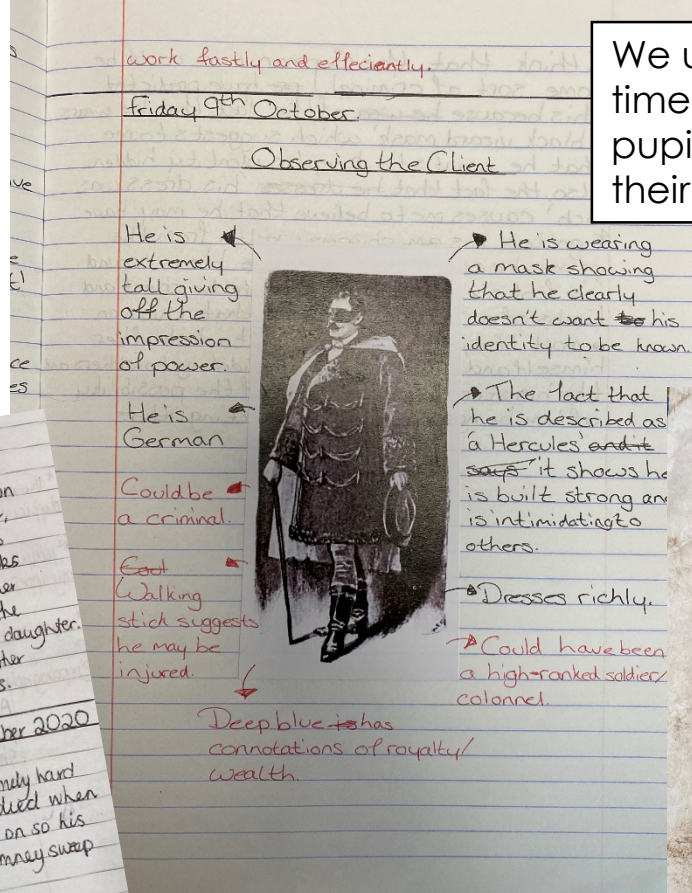 work fastly and effeciantly.
Friday 9th October.
Observing the Client
He is
extremely
tall giving
off the
impression
of power.
He is
German
Could be
a criminal.
Walking
stick suggests
he may be
injured.
Deep blue has
connotations of royalty/
wealth.
He is wearing
a mask showing
that he clearly
doesn't want his
identity to be known.
The fact that
he is described as
'a Hercules' and it
says it shows he
is built strong an
is intimidating to
others.
Dresses richly.
Could have been
a high-ranked soldier/
colonnel.
We u
time
pupi
their
daughter.
ber 2020
mely hard
died when
on so his
mney sweep